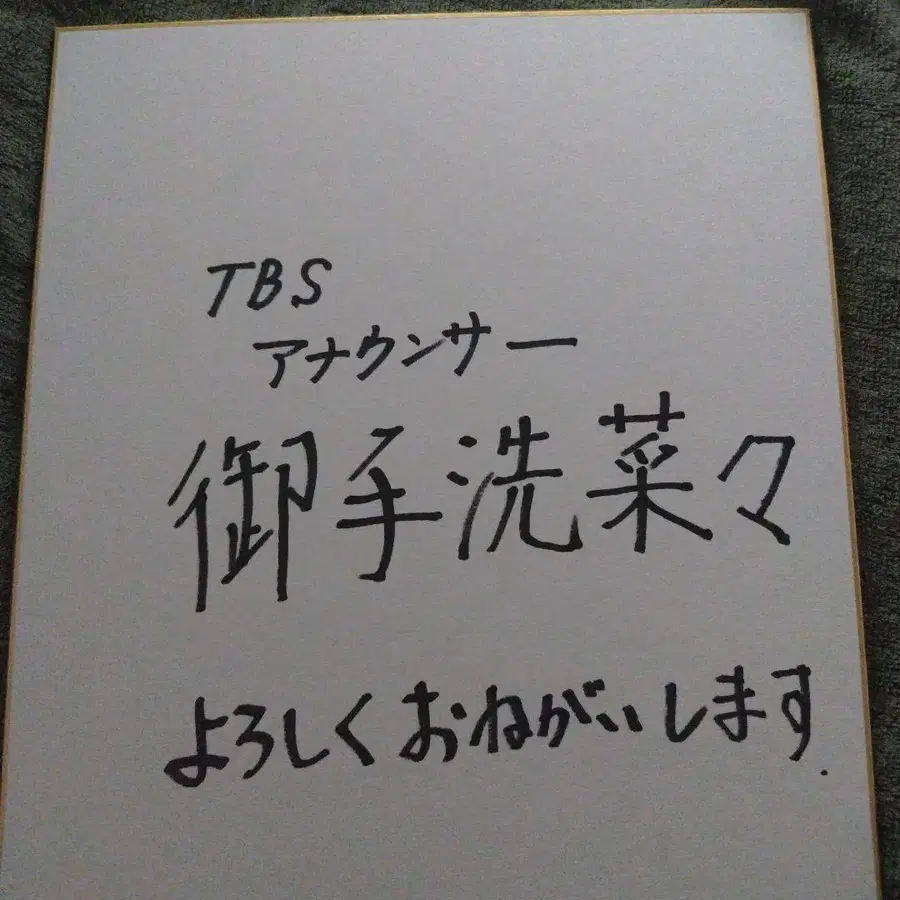 TBS
アナウンサー
御手洗菜々
よろしくおねがいします.